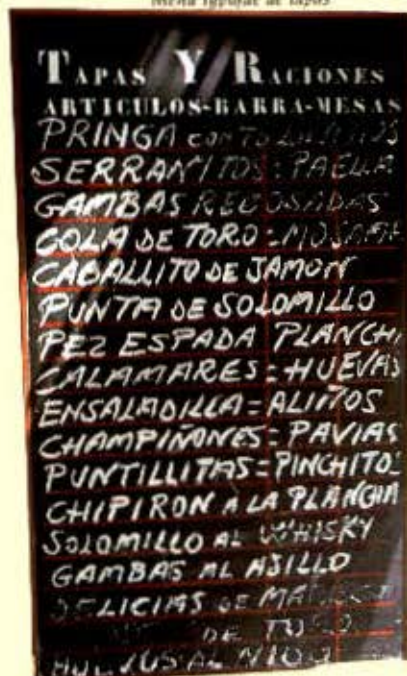 TAPAS Y RACIONES
ARTICULOS-BARRA-MESAS
PRINGA CON
SERRANITOS: PAELLA
GAMBAS REBOSADAS
COLA DE TORO:
CABALLITO DE JAMON
PUNTA DE SOLOMILLO
PEZ ESPADA PLANCH
CALAMARES: HUEVAS
ENSALADILLA = ALIÑOS
CHAMPIÑONES = PAVIAS
PUNTILLITAS = PINCHITO
CHIPIRON A LA PLANCHA
SOLOMILLO AL WHISKY
GAMBAS AL AJILLO
DELICIAS DE
DE
AL NIDO